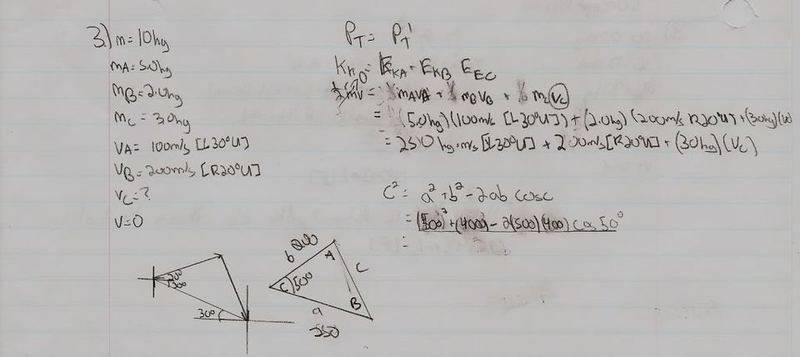 3.) m = 10kg
mA = 5.0kg
mB = 2.0kg
mC = 3.0kg
VA = 100m/s [L30°U]
VB = 200m/s [R20°U]
VC = ?
V = 0
PT = PT'
= (5.0kg)(100m/s [L30°U]) + (2.0kg)(200m/s R20°U) + (3.0kg)(
= 250 kg·m/s [L30°U] + 200m/s [R20°U] + (30kg)(VC)
c² = a² + b² - 2ab cosc
= (500)² + (400)² - 2(500)(400) cos 50°
=
20°
30°
30°
b 200
A
C
50°
c
B
a
550